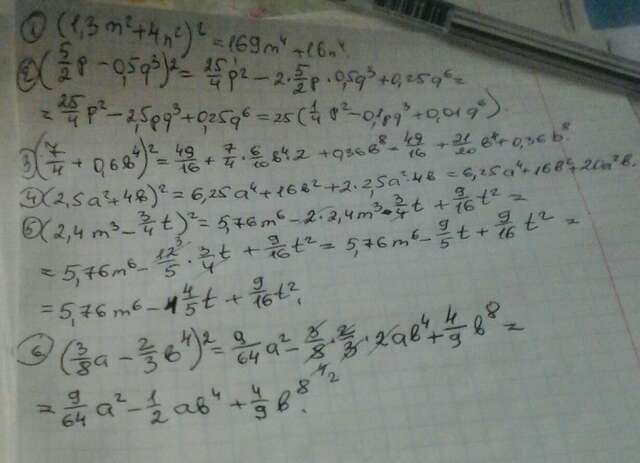 ① (1,3m²+4n²)² = 169m⁴+16n⁴
② (5/2p − 0,5q³)² = 25/4p² − 2·5/2p·0,5q³ + 0,25q⁶ =
= 25/4p² − 2,5pq³ + 0,25q⁶ = 25(1/4p² − 0,1pq³ + 0,01q⁶).
3) (7/4 + 0,6b⁴)² = 49/16 + 7/4·6/10b⁴·2 + 0,36b⁸ = 49/16 + 21/20b⁴ + 0,36b⁸.
4) (2,5a²+4b)² = 6,25a⁴+16b²+2·2,5a²·4b = 6,25a⁴+16b²+20a²b.
5) (2,4m³ − 3/4t)² = 5,76m⁶ − 2·2,4m³·3/4t + 9/16t² =
= 5,76m⁶ − 12/5·3/4t + 9/16t² = 5,76m⁶ − 9/5t + 9/16t² =
= 5,76m⁶ − 1 4/5t + 9/16t².
6) (3/8a − 2/3b⁴)² = 9/64a² − 3/8·2/3·2ab⁴ + 4/9b⁸ =
= 9/64a² − 1/2ab⁴ + 4/9b⁸.